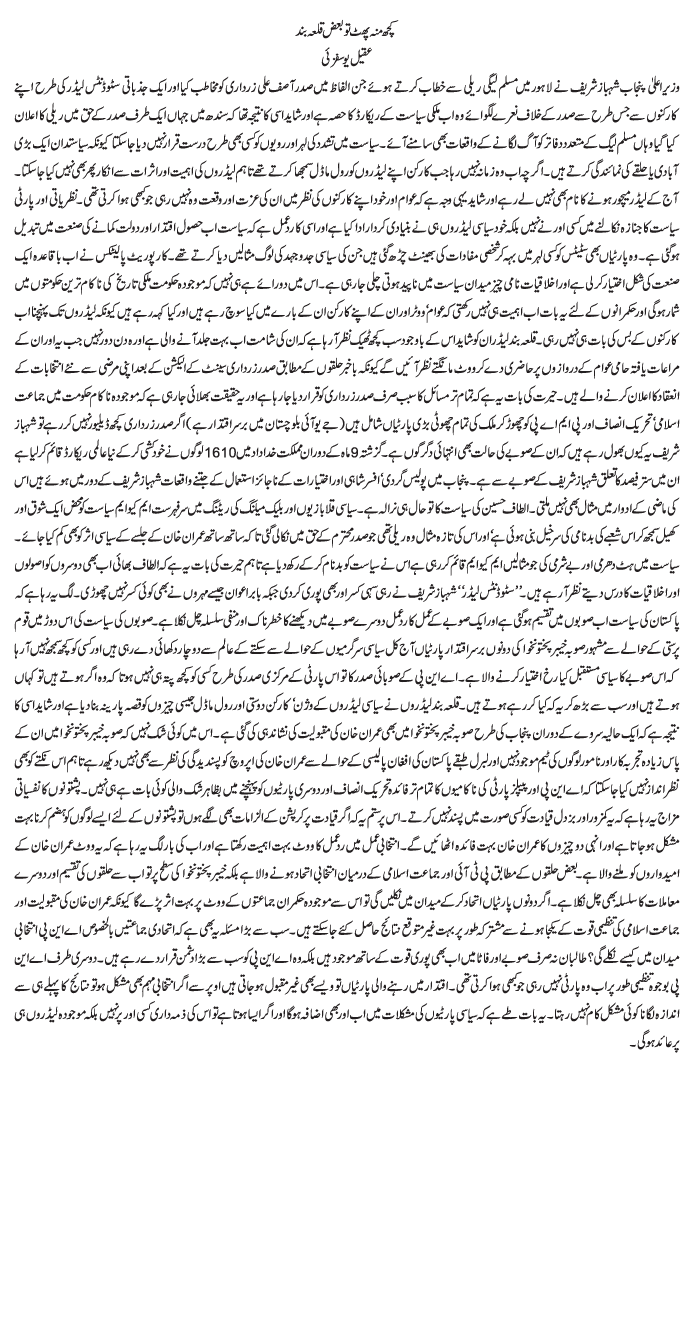 کچھ منہ پھٹ تو بعض قلعہ بند
عقیل یوسفزئی
وزیراعلیٰ پنجاب شہباز شریف نے لاہور میں مسلم لیگی ریلی سے خطاب کرتے ہوئے جن الفاظ میں صدر آصف علی زرداری کو مخاطب کیا اور ایک جذباتی سٹوڈنٹس لیڈر کی طرح اپنے
کارکنوں سے جس طرح سے صدر کے خلاف نعرے لگوائے وہ اب ملکی سیاست کے ریکارڈ کا حصہ ہے اور شاید اسی کا نتیجہ تھا کہ سندھ میں جہاں ایک طرف صدر کے حق میں ریلی کا اعلان
کیا گیا وہاں مسلم لیگ کے متعدد دفاتر کو آگ لگانے کے واقعات بھی سامنے آئے۔ سیاست میں تشدد کی لہر اور رویوں کو کسی بھی طرح درست قرار نہیں دیا جا سکتا کیونکہ سیاستدان ایک بڑی
آبادی یا حلقے کی نمائندگی کرتے ہیں۔ اگرچہ اب وہ زمانہ نہیں رہا جب کارکن اپنے لیڈروں کو رول ماڈل سمجھا کرتے تھے تاہم لیڈروں کی اہمیت اور اثرات سے انکار پھر بھی نہیں کیا جا سکتا۔
آج کے لیڈر میچور ہونے کا نام بھی نہیں لے رہے اور شاید یہی وجہ ہے کہ عوام اور خود اپنے کارکنوں کی نظر میں ان کی عزت اور وقعت وہ نہیں رہی جو کبھی ہوا کرتی تھی۔ نظریاتی اور پارٹی
سیاست کا جنازہ نکالنے میں کسی اور نے نہیں بلکہ خود سیاسی لیڈروں ہی نے بنیادی کردار ادا کیا ہے اور اسی کا رد عمل ہے کہ سیاست اب حصول اقتدار اور دولت کمانے کی صنعت میں تبدیل
ہو گئی ہے۔ وہ پارٹیاں بھی سٹیٹس کو کی لہر میں بہہ کر شخصی مفادات کی بھینٹ چڑھ گئی ہیں جن کی سیاسی جدوجہد کی لوگ مثالیں دیا کرتے تھے۔ کارپوریٹ پالیٹکس نے اب باقاعدہ ایک
صنعت کی شکل اختیار کر لی ہے اور اخلاقیات نامی چیز میدان سیاست میں ناپید ہوتی چلی جا رہی ہے۔ اس میں دو رائے ہے ہی نہیں کہ موجودہ حکومت ملکی تاریخ کی ناکام ترین حکومتوں میں
شمار ہو گی اور حکمرانوں کے لئے یہ بات اب اہمیت ہی نہیں رکھتی کہ عوام‘ ووٹر اور ان کے اپنے کارکن ان کے بارے میں کیا سوچ رہے ہیں اور کیا کہہ رہے ہیں کیونکہ لیڈروں تک پہنچنا اب
کارکنوں کے بس کی بات ہی نہیں رہی۔ قلعہ بند لیڈران کو شاید اس کے باوجود سب کچھ ٹھیک نظر آ رہا ہے کہ ان کی شامت اب بہت جلد آنے والی ہے اور وہ دن دور نہیں جب یہ اور ان کے
مراعات یافتہ حامی عوام کے دروازوں پر حاضری دے کر ووٹ مانگتے نظر آئیں گے کیونکہ باخبر حلقوں کے مطابق صدر زرداری سینٹ کے الیکشن کے بعد اپنی مرضی سے نئے انتخابات کے
انعقاد کا اعلان کرنے والے ہیں۔ حیرت کی بات یہ ہے کہ تمام تر مسائل کا سبب صرف صدر زرداری کو قرار دیا جا رہا ہے اور یہ حقیقت بھلائی جا رہی ہے کہ موجودہ ناکام حکومت میں جماعت
اسلامی‘ تحریک انصاف اور پی ایم اے پی کو چھوڑ کر ملک کی تمام چھوٹی بڑی پارٹیاں شامل ہیں (جے یو آئی بلوچستان میں برسر اقتدار ہے) اگر صدر زرداری کچھ ڈیلیور نہیں کر رہے تو شہباز
شریف یہ کیوں بھول رہے ہیں کہ ان کے صوبے کی حالت بھی انتہائی دگرگوں ہے۔ گزشتہ 9 ماہ کے دوران مملکت خداداد میں 1610 لوگوں نے خودکشی کر کے نیا عالمی ریکارڈ قائم کر لیا ہے
ان میں ستر فیصد کا تعلق شہباز شریف کے صوبے سے ہے۔ پنجاب میں پولیس گردی‘ افسر شاہی اور اختیارات کے ناجائز استعمال کے جتنے واقعات شہباز شریف کے دور میں ہوئے ہیں اس
کی ماضی کے ادوار میں مثال بھی نہیں ملتی۔ الطاف حسین کی سیاست کا تو حال ہی نرالہ ہے۔ سیاسی قلابازیوں اور بلیک میلنگ کی ریٹنگ میں سرفہرست ایم کیو ایم سیاست کو محض ایک شوق اور
کھیل سمجھ کر اس شعبے کی بدنامی کی سرخیل بنی ہوئی ہے‘ اور اس کی تازہ مثال وہ ریلی تھی جو صدر محترم کے حق میں نکالی گئی تاکہ ساتھ ساتھ عمران خان کے جلسے کے سیاسی اثر کو بھی کم کیا جائے۔
سیاست میں ہٹ دھرمی اور بے شرمی کی جو مثالیں ایم کیو ایم قائم کر رہی ہے اس نے سیاست کو بدنام کر کے رکھ دیا ہے تاہم حیرت کی بات یہ ہے کہ الطاف بھائی اب بھی دوسروں کو اصولوں
اور اخلاقیات کا درس دیتے نظر آ رہے ہیں۔ ’’سٹوڈنٹس لیڈر‘‘ شہباز شریف نے رہی سہی کسر اور بھی پوری کر دی جبکہ بابر اعوان جیسے مہروں نے بھی کوئی کسر نہیں چھوڑی۔ لگ یہ رہا ہے کہ
پاکستان کی سیاست اب صوبوں میں تقسیم ہو گئی ہے اور ایک صوبے کے عمل کا رد عمل دوسرے صوبے میں دیکھنے کا خطرناک اور منفی سلسلہ چل نکلا ہے۔ صوبوں کی سیاست کی اس دوڑ میں قوم
پرستی کے حوالے سے مشہور صوبہ خیبر پختونخوا کی دونوں برسر اقتدار پارٹیاں آج کل سیاسی سرگرمیوں کے حوالے سے سکتے کے عالم سے دوچار دکھائی دے رہی ہیں اور کسی کو کچھ سمجھ نہیں آ رہا
کہ اس صوبے کا سیاسی مستقبل کیا رخ اختیار کرنے والا ہے۔ اے این پی کے صوبائی صدر کا تو اس پارٹی کے مرکزی صدر کی طرح کسی کو کچھ پتہ ہی نہیں ہوتا کہ وہ اگر ہوتے ہیں تو کہاں
ہوتے ہیں اور سب سے بڑھ کر یہ کہ کیا کر رہے ہوتے ہیں۔ قلعہ بند لیڈروں نے سیاسی لیڈروں کے وژن‘ کارکن دوستی اور رول ماڈل جیسی چیزوں کو قصہ پارینہ بنا دیا ہے اور شاید اسی کا
نتیجہ ہے کہ ایک حالیہ سروے کے دوران پنجاب کی طرح صوبہ خیبر پختونخوا میں بھی عمران خان کی مقبولیت کی نشاندہی کی گئی ہے۔ اس میں کوئی شک نہیں کہ صوبہ خیبر پختونخوا میں ان کے
پاس زیادہ تجربہ کار اور نامور لوگوں کی ٹیم موجود نہیں اور لبرل طبقے پاکستان کی افغان پالیسی کے حوالے سے عمران خان کی اپروچ کو پسندیدگی کی نظر سے بھی نہیں دیکھ رہے تاہم اس نکتے کو بھی
نظر انداز نہیں کیا جا سکتا کہ اے این پی اور پیپلز پارٹی کی ناکامیوں کا تمام تر فائدہ تحریک انصاف اور دوسری پارٹیوں کو پہنچنے میں بظاہر شک والی کوئی بات ہے ہی نہیں۔ پشتونوں کا نفسیاتی
مزاج یہ رہا ہے کہ یہ کمزور اور بزدل قیادت کو کسی صورت میں پسند نہیں کرتے۔ اس پرستم یہ کہ اگر قیادت پر کرپشن کے الزامات بھی لگے ہوں تو پشتونوں کے لئے ایسے لوگوں کو ہضم کرنا بہت
مشکل ہو جاتا ہے اور انہی دو چیزوں کا عمران خان بہت فائدہ اٹھائیں گے۔ انتخابی عمل میں رد عمل کا ووٹ بہت اہمیت رکھتا ہے اور اب کی بار لگ یہ رہا ہے کہ یہ ووٹ عمران خان کے
امیدواروں کو ملنے والا ہے۔ بعض حلقوں کے مطابق پی ٹی آئی اور جماعت اسلامی کے درمیان انتخابی اتحاد ہونے والا ہے بلکہ خیبر پختونخوا کی سطح پر تو اب سے حلقوں کی تقسیم اور دوسرے
معاملات کا سلسلہ بھی چل نکلا ہے۔ اگر دونوں پارٹیاں اتحاد کر کے میدان میں نکلیں گی تو اس سے موجودہ حکمران جماعتوں کے ووٹ پر بہت اثر پڑے گا کیونکہ عمران خان کی مقبولیت اور
جماعت اسلامی کی تنظیمی قوت کے یکجا ہونے سے مشترکہ طور پر بہت غیر متوقع نتائج حاصل کئے جا سکتے ہیں۔ سب سے بڑا مسئلہ یہ بھی ہے کہ اتحادی جماعتیں بالخصوص اے این پی انتخابی
میدان میں کیسے نکلے گی؟ طالبان نہ صرف صوبے اور فاٹا میں اب بھی پوری قوت کے ساتھ موجود ہیں بلکہ وہ اے این پی کو سب سے بڑا دشمن قرار دے رہے ہیں۔ دوسری طرف اے این
پی بوجوہ تنظیمی طور پر اب وہ پارٹی نہیں رہی جو کبھی ہوا کرتی تھی۔ اقتدار میں رہنے والی پارٹیاں تو ویسے بھی غیر مقبول ہو جاتی ہیں اوپر سے اگر انتخابی مہم بھی مشکل ہو تو نتائج کا پہلے ہی سے
اندازہ لگانا کوئی مشکل کام نہیں رہتا۔ یہ بات طے ہے کہ سیاسی پارٹیوں کی مشکلات میں اب اور بھی اضافہ ہو گا اور اگر ایسا ہوتا ہے تو اس کی ذمہ داری کسی اور پر نہیں بلکہ موجودہ لیڈروں ہی
پر عائد ہو گی۔